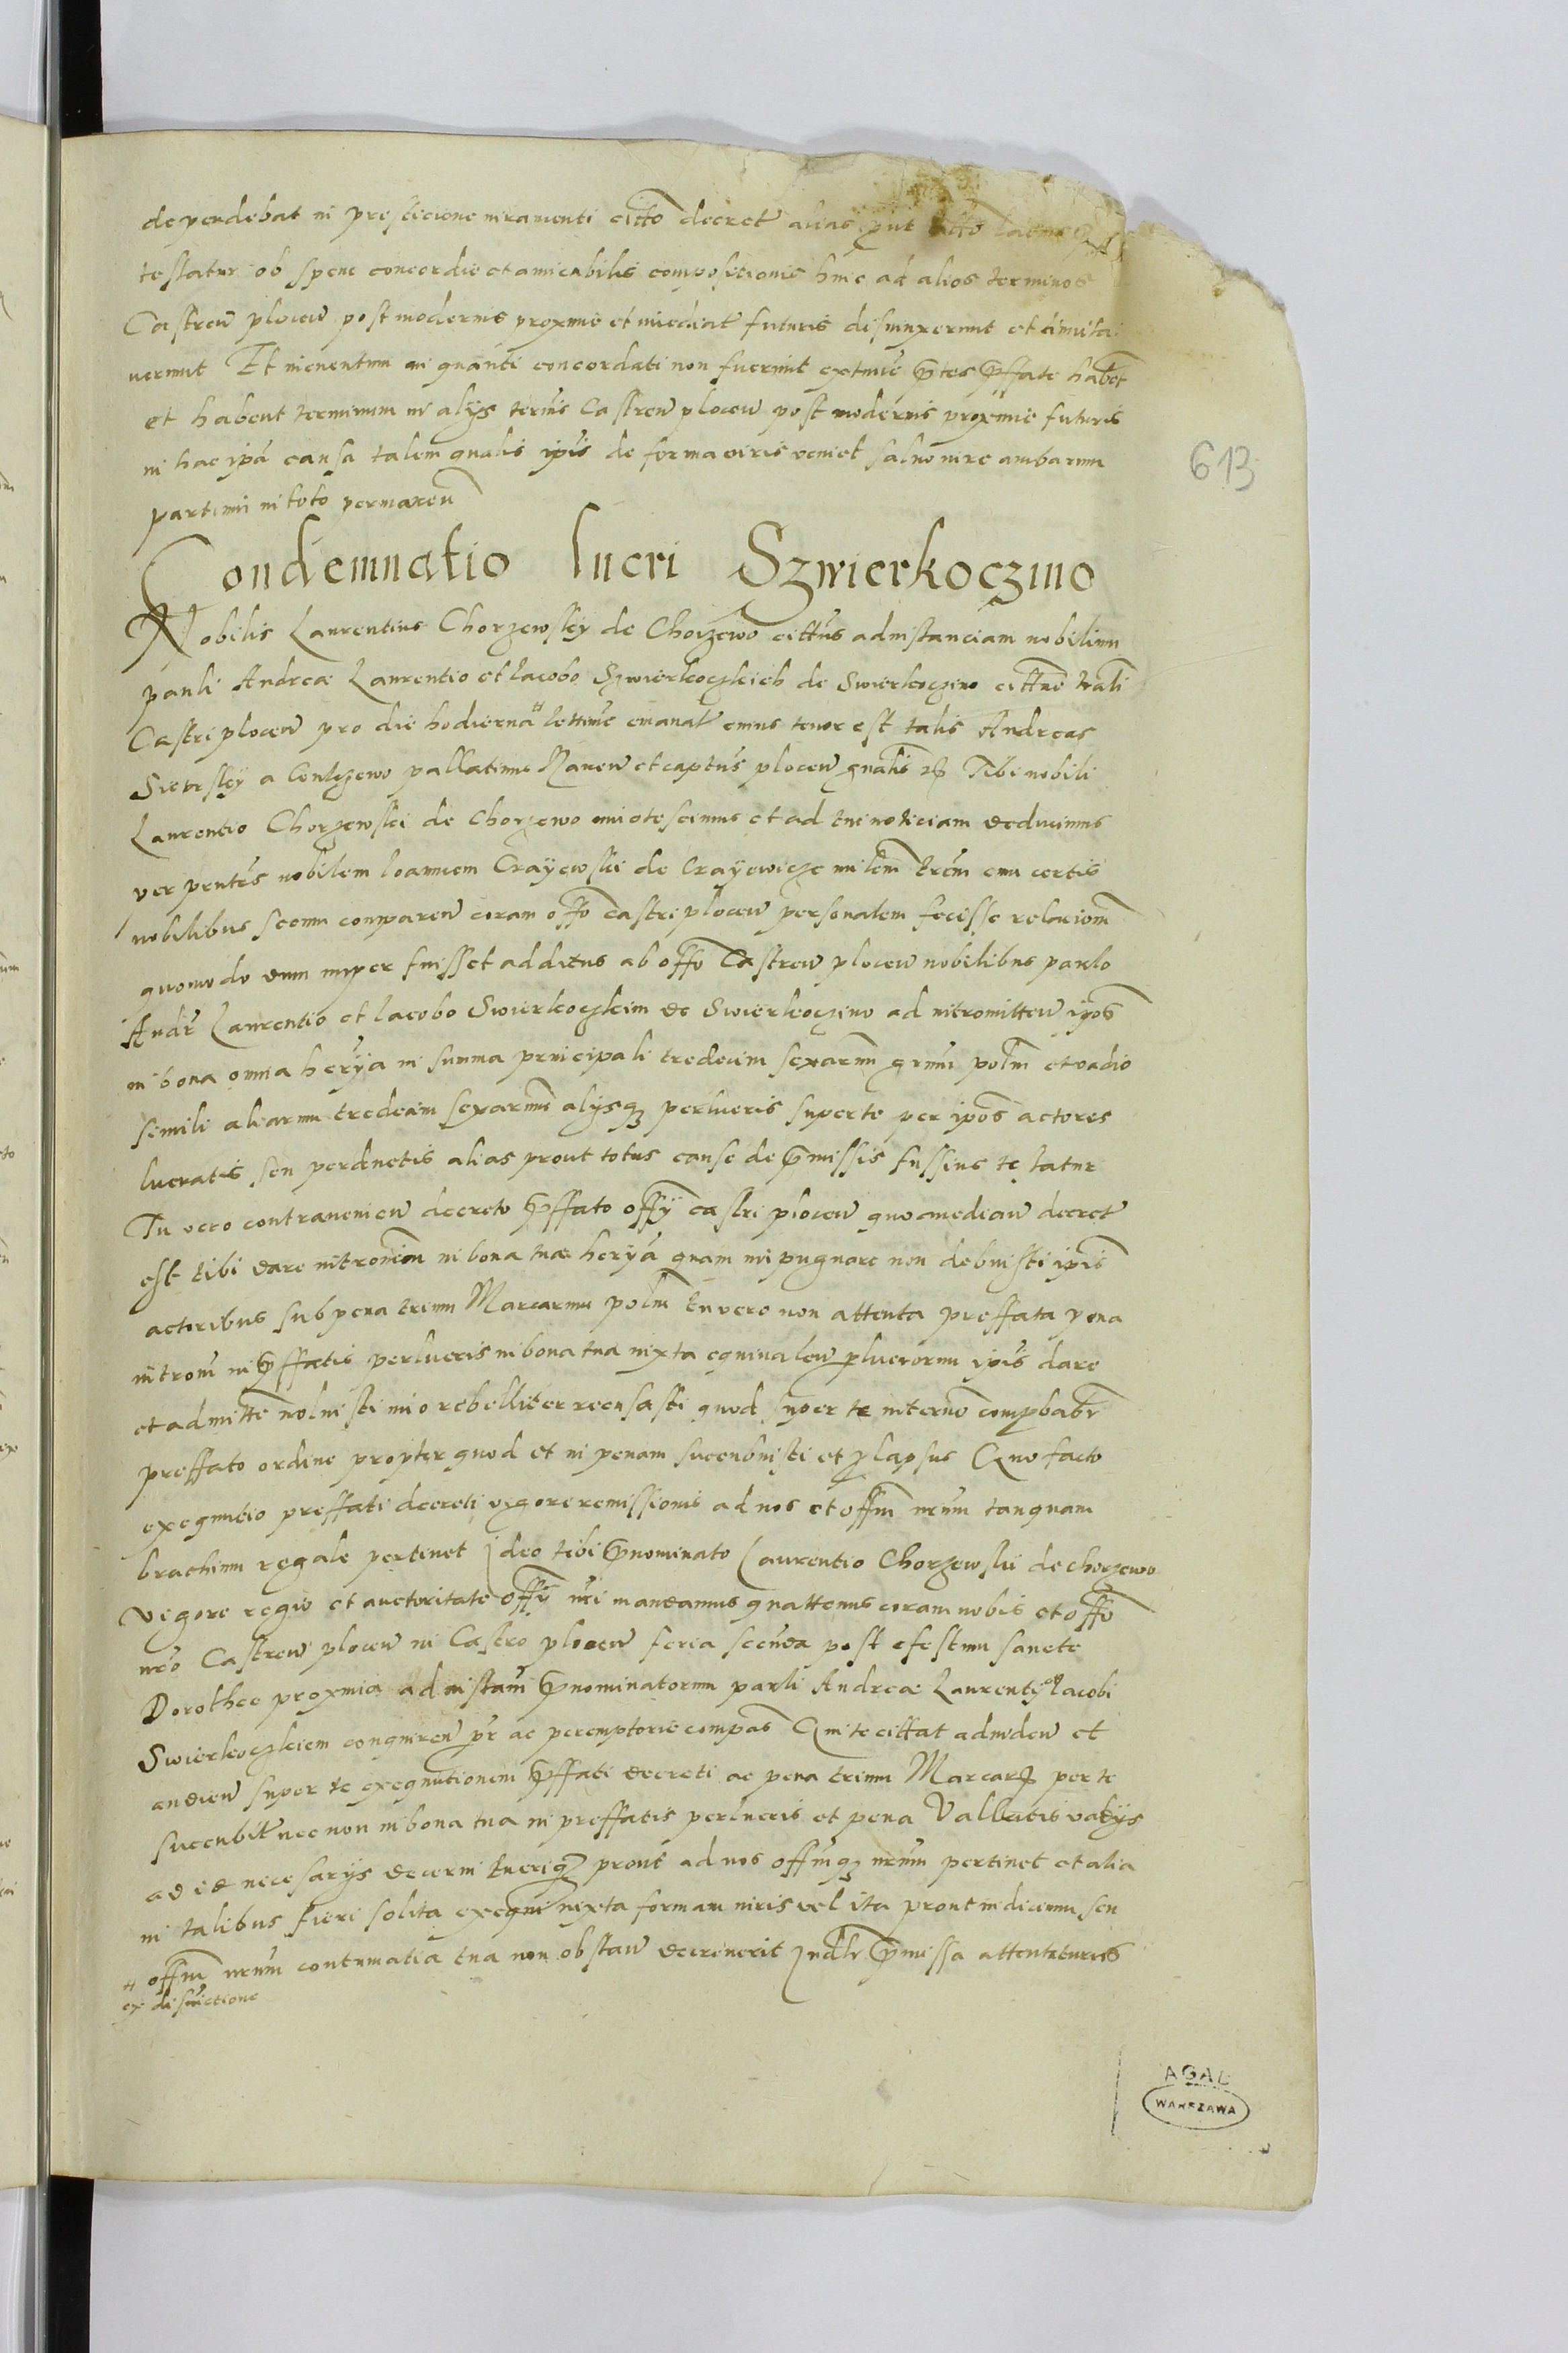 dependebat in presticione iuramenti citto decret alias put
testatur ob spem concordie et amicabilis compositionis hinc ad alios terminos
Castren plocen post modernis proxime et imediat futuris disiunxerunt et dimita
verunt Et inventum in quanti concordati non fuerint extunc ptes pffate habet
et habent terminum in alijs termis Castren plocen post modernis proxime futuris
in hac ipa causa talem qualis ipis de forma iuris veniet saluo iure ambarum
partium in toto permanen
Condemnatio lucri Szwierkoczino
Nobilis Laurentius Chorzewsky de Chorzewo cittus ad instanciam nobilium
pauli Andreae Laurentio et Iacobo Szwierkoczkich de Swierkoczino cittne trali
Castri plocen pro die hodierna # lettime emanat cuius tenor est talis Andreas
Sieprsky a Gulczewo pallatinus Raven et captus plocen gnalis etc Tibi nobili
Laurentio Chorzewski de Chorzewo innotescimus et ad tui noticiam deducimus
per pentes nobilem Ioannem Crayewski de Crayewicze milem trem cum certis
nobilibus secum comparen coram offo castri plocen personalem fecisse relaciom
quomodo dum nuper fuisset additus ab offo Castren plocen nobilibus paulo
Andr Laurentio et Iacobo Swierkoczkim de Swierkoczino ad intromitten ipos
in bona omnia herija in summa principali tredecim sexarum grum polm et vadio
simili aliarum tredecim sexarum alijsq perlucris super te per ipos actores
lucratis seu perductis alias prout totus cause de pmissis fussius testatur
Tu vero contravenien decreto pffato offij castri plocen quo median decret
est tibi dare intromiom in bona tua herija quam impugnare non debuisti ipis
actoribus sub pena trium Marcarum polm tu vero non attenta preffata pena
introm in pffatis perlucris in bona tua iuxta equivalen plucrorum ipis dare
et admitte noluisti imo rebelliter recusasti quod super te interuo compbabr
preffato ordine propter quod et in penam succubuisti et plapsus Quo facto
exequutio preffati decreti vigore remissionis ad nos et offm nrum tanquam
brachium regale pertinet Ideo tibi pnominato Laurentio Chorzewski de chorzewo
vigore regio et auctoritate offij nri mandamus quattenus coram nobis et offo
nro Castren plocen in Castro plocen feria secunda post efestum sancte
Dorothee proxima ad instam pnominatorum pauli Andreae Laurentij et Iacobi
Swierkoczkiem conqueren pr ac peremptorie compas Qui te cittat ad viden et
audien super te exequutionem pffati decreti ac pena trium Marcarz per te
succubit nec non in bona tua in preffatis perlucris et pena Vallatis vadijs
ad id necesarijs decerni tueriq prout ad nos offmq nrum pertinet et alia
in talibus fieri solita exequi iuxta formam iuris vel ita prout iudicium seu
offm nrum contumatia tua non obstan decrenerit Iudlr pmissa attentaturus
# ex districtione
613
AGAD
WARSZAWA